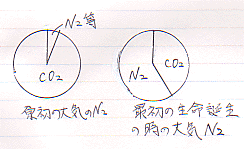 N2等
CO2
N2
CO2
最初の大気のN2
最初の生命誕生
の時の大気N2